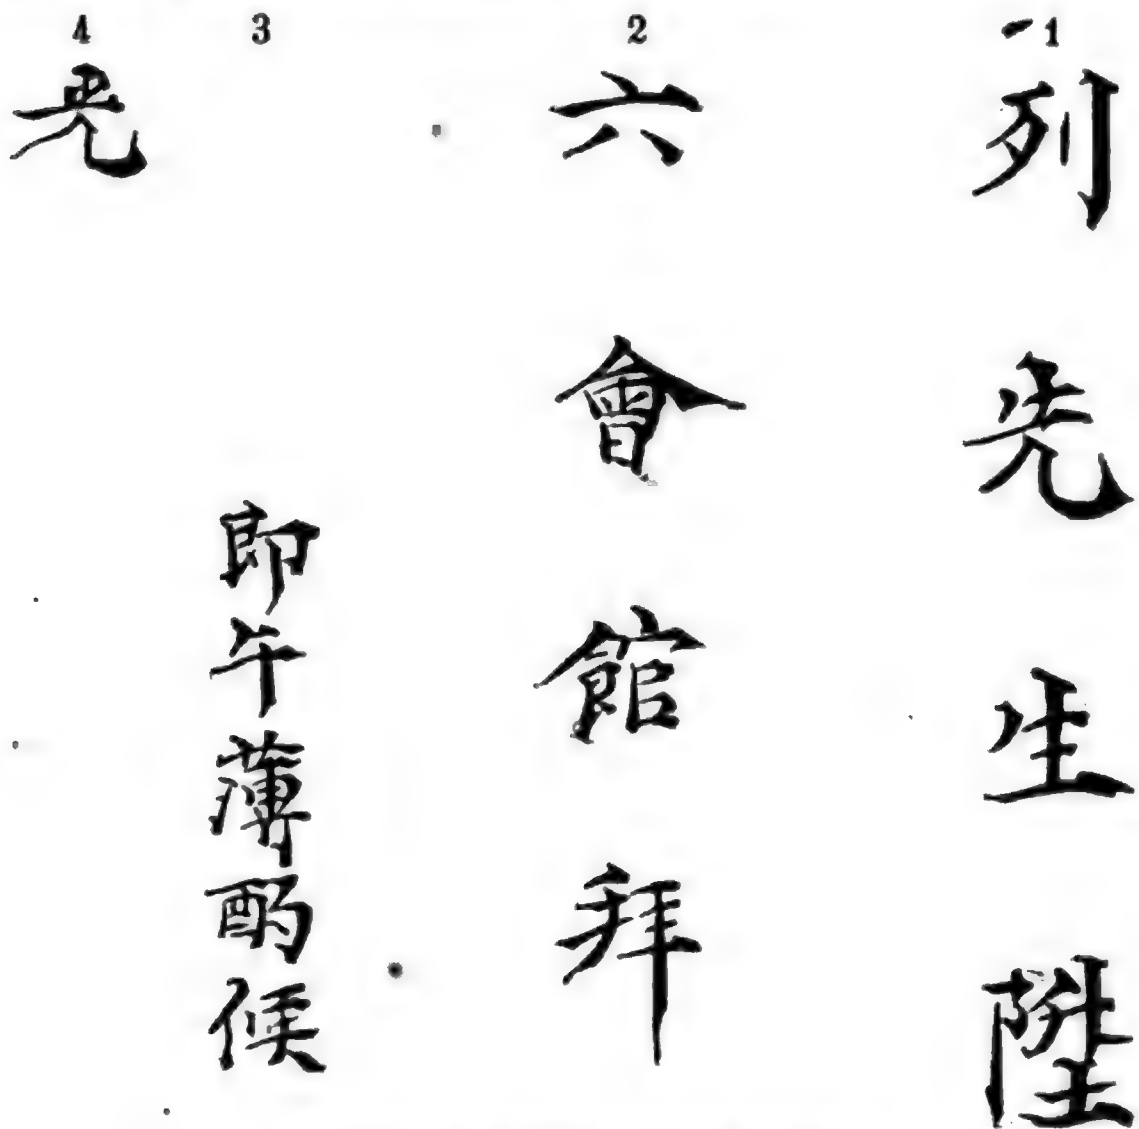 1 列先生陞
2 六會館拜
3 即午薄酌候
4 光